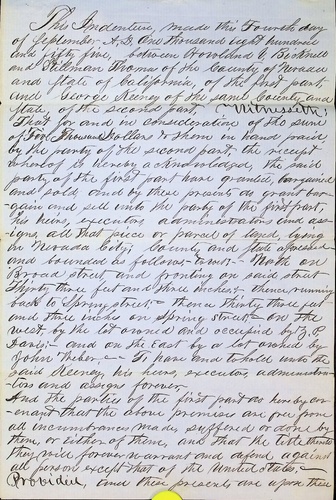 This Indenture, made this Fourth day
of September A.D. One thousand eight hundred
and fifty five, between Rowland E. Bicknell
and Thomas of the County of Nevada
and State of California, of the first part,
and George Keeney of the same County and
State of the second part Witnesseth:
That for and in consideration of the sum
of Two Thousand Dollars to them in hand paid
by the party of the second part the receipt
whereof is hereby acknowledged, the said
party of the first part have granted, bargained
and sold, and by these presents do grant bar-
gain and sell unto the party of the first part,
his heirs, executors administrators and ass-
igns, all that piece or parcel of land, lying
in Nevada City, County and State aforesaid
and bounded as follows to wit:— North on
Broad street, and fronting on said street
Thirty three feet and three inches;— thence running
back to Spring street;— thence thirty three feet
and three inches on Spring street;— on the
west, by the lot owned and occupied by Z. P.
Davis;— and on the East by a lot owned by
John Weber —— To have and to hold unto the
said Keeney, his heirs, executors, administra-
tors and assigns forever.
And the parties of the first part do hereby cov-
enant that the above premises are free from
all incumbrances made, suffered or done by
them, or either of them, and that the title thereto
they will forever warrant and defend against
all person except that of the United States,—
Provided, and these presents are upon these